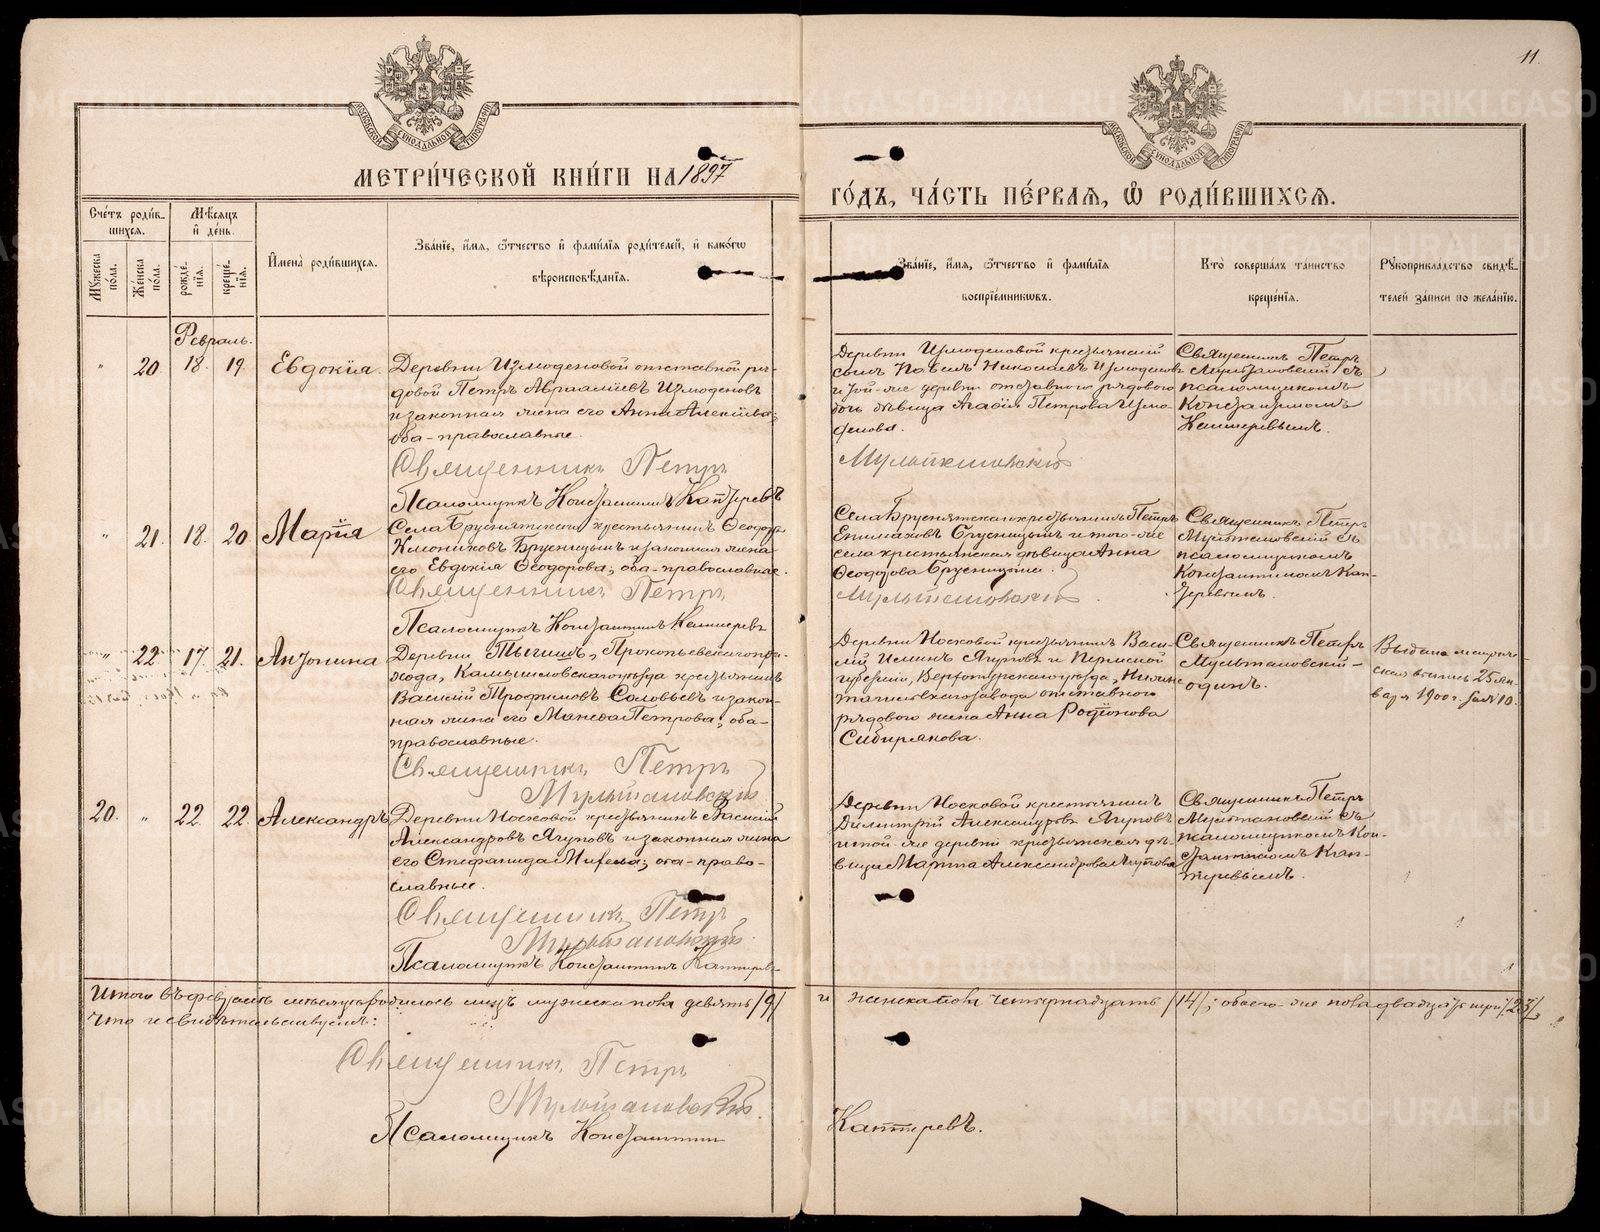 11.
МЕТРИ́ЧЕСКОЙ КНИ́ГИ НА 1897
ГО́ДЪ, ЧА́СТЬ ПЕ́РВАЯ, Ѡ҆ РОДИ́ВШИХСѦ.
Сче́тъ роди́в-
шихсѧ.
Мѣ́сѧцъ
и҆ де́нь.
Мꙋ́жеска
по́ла.
Же́нска
по́ла.
рожде́-
нїѧ.
креще́-
нїѧ.
И҆мена̀ роди́вшихсѧ.
Зва́нїе, и҆́мѧ, ѻ҆́тчество и҆ фами́лїѧ роди́телей, и҆ како́гѡ
вѣроисповѣ́данїѧ.
Зва́нїе, и҆́мѧ, ѻ҆́тчество и҆ фами́лїѧ
воспрїе́мникѡвъ.
Кто̀ соверша́лъ та́инство
креще́нїѧ.
Рꙋкоприкла́дство свидѣ́-
телей за́писи по жела́нїю.
Февраль.
" 20 18. 19. Евдокія.
Деревни Измоденовой отставной ря-
довой Петръ Авраміевъ Измоденовъ
и законная жена его Анна Алексіева;
оба-православные.
Священникъ Петръ
Псаломщикъ Константинъ Каптеревъ
Деревни Измоденовой крестьянскій
сынъ Павелъ Николаевъ Измоденовъ
и той-же деревни отставного рядового
дочь дѣвица Агафія Петрова Измо-
денова.
Мультановскій
Священникъ Петръ
Мультановскій съ
псаломщикомъ
Константиномъ
Каптеревымъ.
" 21. 18. 20 Марія
Села Бруснятскаго крестьянинъ Ѳеодоръ
Брусницынъ и законная жена
его Евдокія Ѳеодорова; оба-православные.
Священникъ Петръ
Псаломщикъ Константинъ Каптеревъ
Села Бруснятскаго крестьянинъ Петръ
Епимаховъ Брусницынъ и того-же
села крестьянская дѣвица Анна
Ѳеодорова Брусницына.
Мультановскій
Священникъ Петръ
Мультановскій съ
псаломщикомъ
Константиномъ Кап-
теревымъ.
" 22 17. 21. Антонина
Деревни Прокопьевскаго при-
хода, Камышловскаго уѣзда крестьянинъ
Василій Трофимовъ Соловьевъ и закон-
ная жена его Петрова; оба-
православные.
Священникъ Петръ
Мультановскій
Деревни Носковой крестьянинъ Васи-
лій Ягуповъ и Пермской
губерніи, Верхотурскаго уѣзда, Нижне-
тагильскаго завода отставного
рядового жена Анна Родіонова
Сибирякова.
Священникъ Петръ
Мультановскій-
одинъ.
Выдана метриче-
ская выпись 25 Ян-
варя 1900 г. за № 10.
20. " 22. 22. Александръ
Деревни Носковой крестьянинъ Василій
Александровъ Ягуповъ и законная жена
его Стефанида; оба-право-
славные.
Священникъ Петръ
Мультановскій
Псаломщикъ Константинъ Каптеревъ
Деревни Носковой крестьянинъ
Димитрій Александровъ Ягуповъ
и той-же деревни крестьянская дѣ-
вица Марѳа Александрова Ягупова
Священникъ Петръ
Мультановскій съ
псаломщикомъ Кон-
стантиномъ Кап-
теревымъ.
Итого въ февралѣ мѣсяцѣ родилось лицъ мужеска пола девять /9/ и женска пола четырнадцать /14/; обоего-же пола двадцать три /23/,
что и свидѣтельствуемъ:
Священникъ Петръ
Мультановскій.
Псаломщикъ Константинъ Каптеревъ.
METRIKI.GASO-URAL.RU